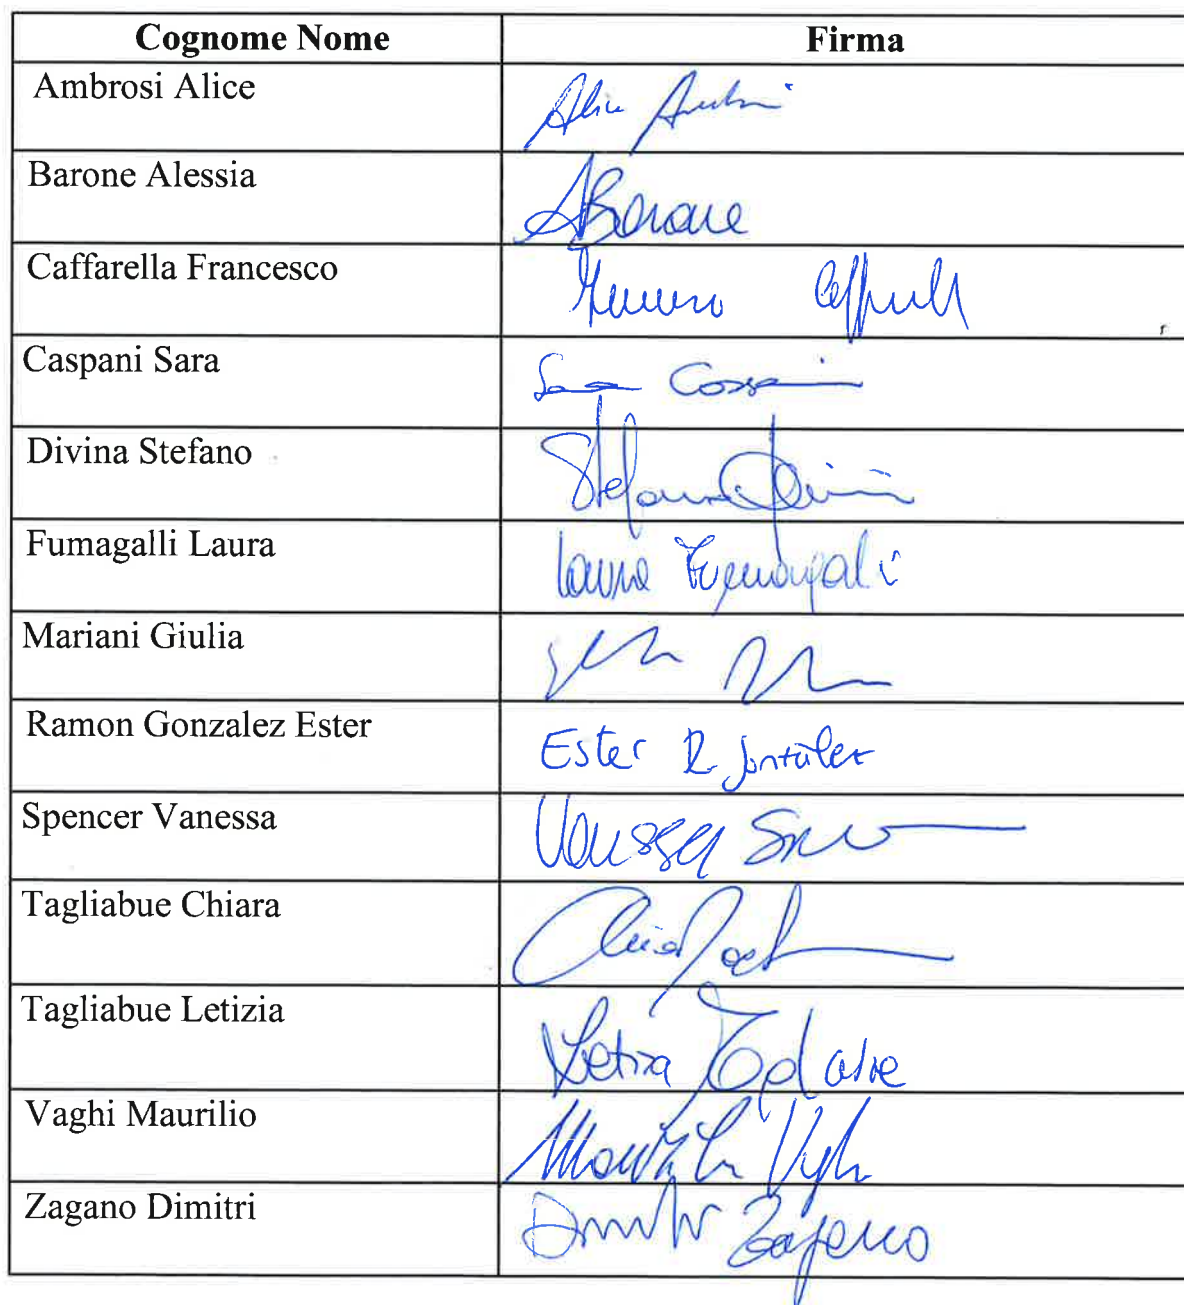 Cognome Nome Firma
Ambrosi Alice Alice
Barone Alessia ABarone
Caffarella Francesco
Caspani Sara Sara
Divina Stefano Stefano
Fumagalli Laura Laura Fumagalli
Mariani Giulia
Ramon Gonzalez Ester Ester R. González
Spencer Vanessa Vanessa
Tagliabue Chiara Chiara
Tagliabue Letizia Letizia
Vaghi Maurilio
Zagano Dimitri Dimitri Zagano